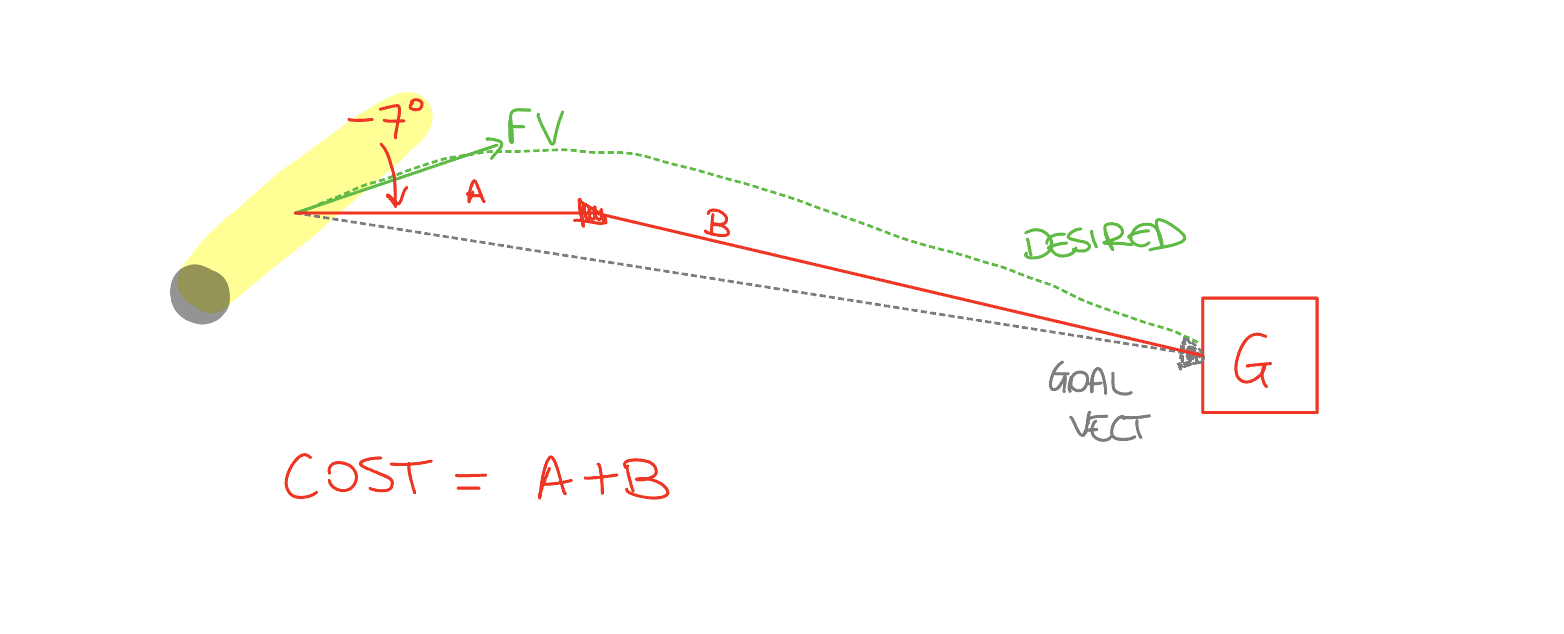 -7°
FV
A
B
DESIRED
G
GOAL
VECT
COST = A+B